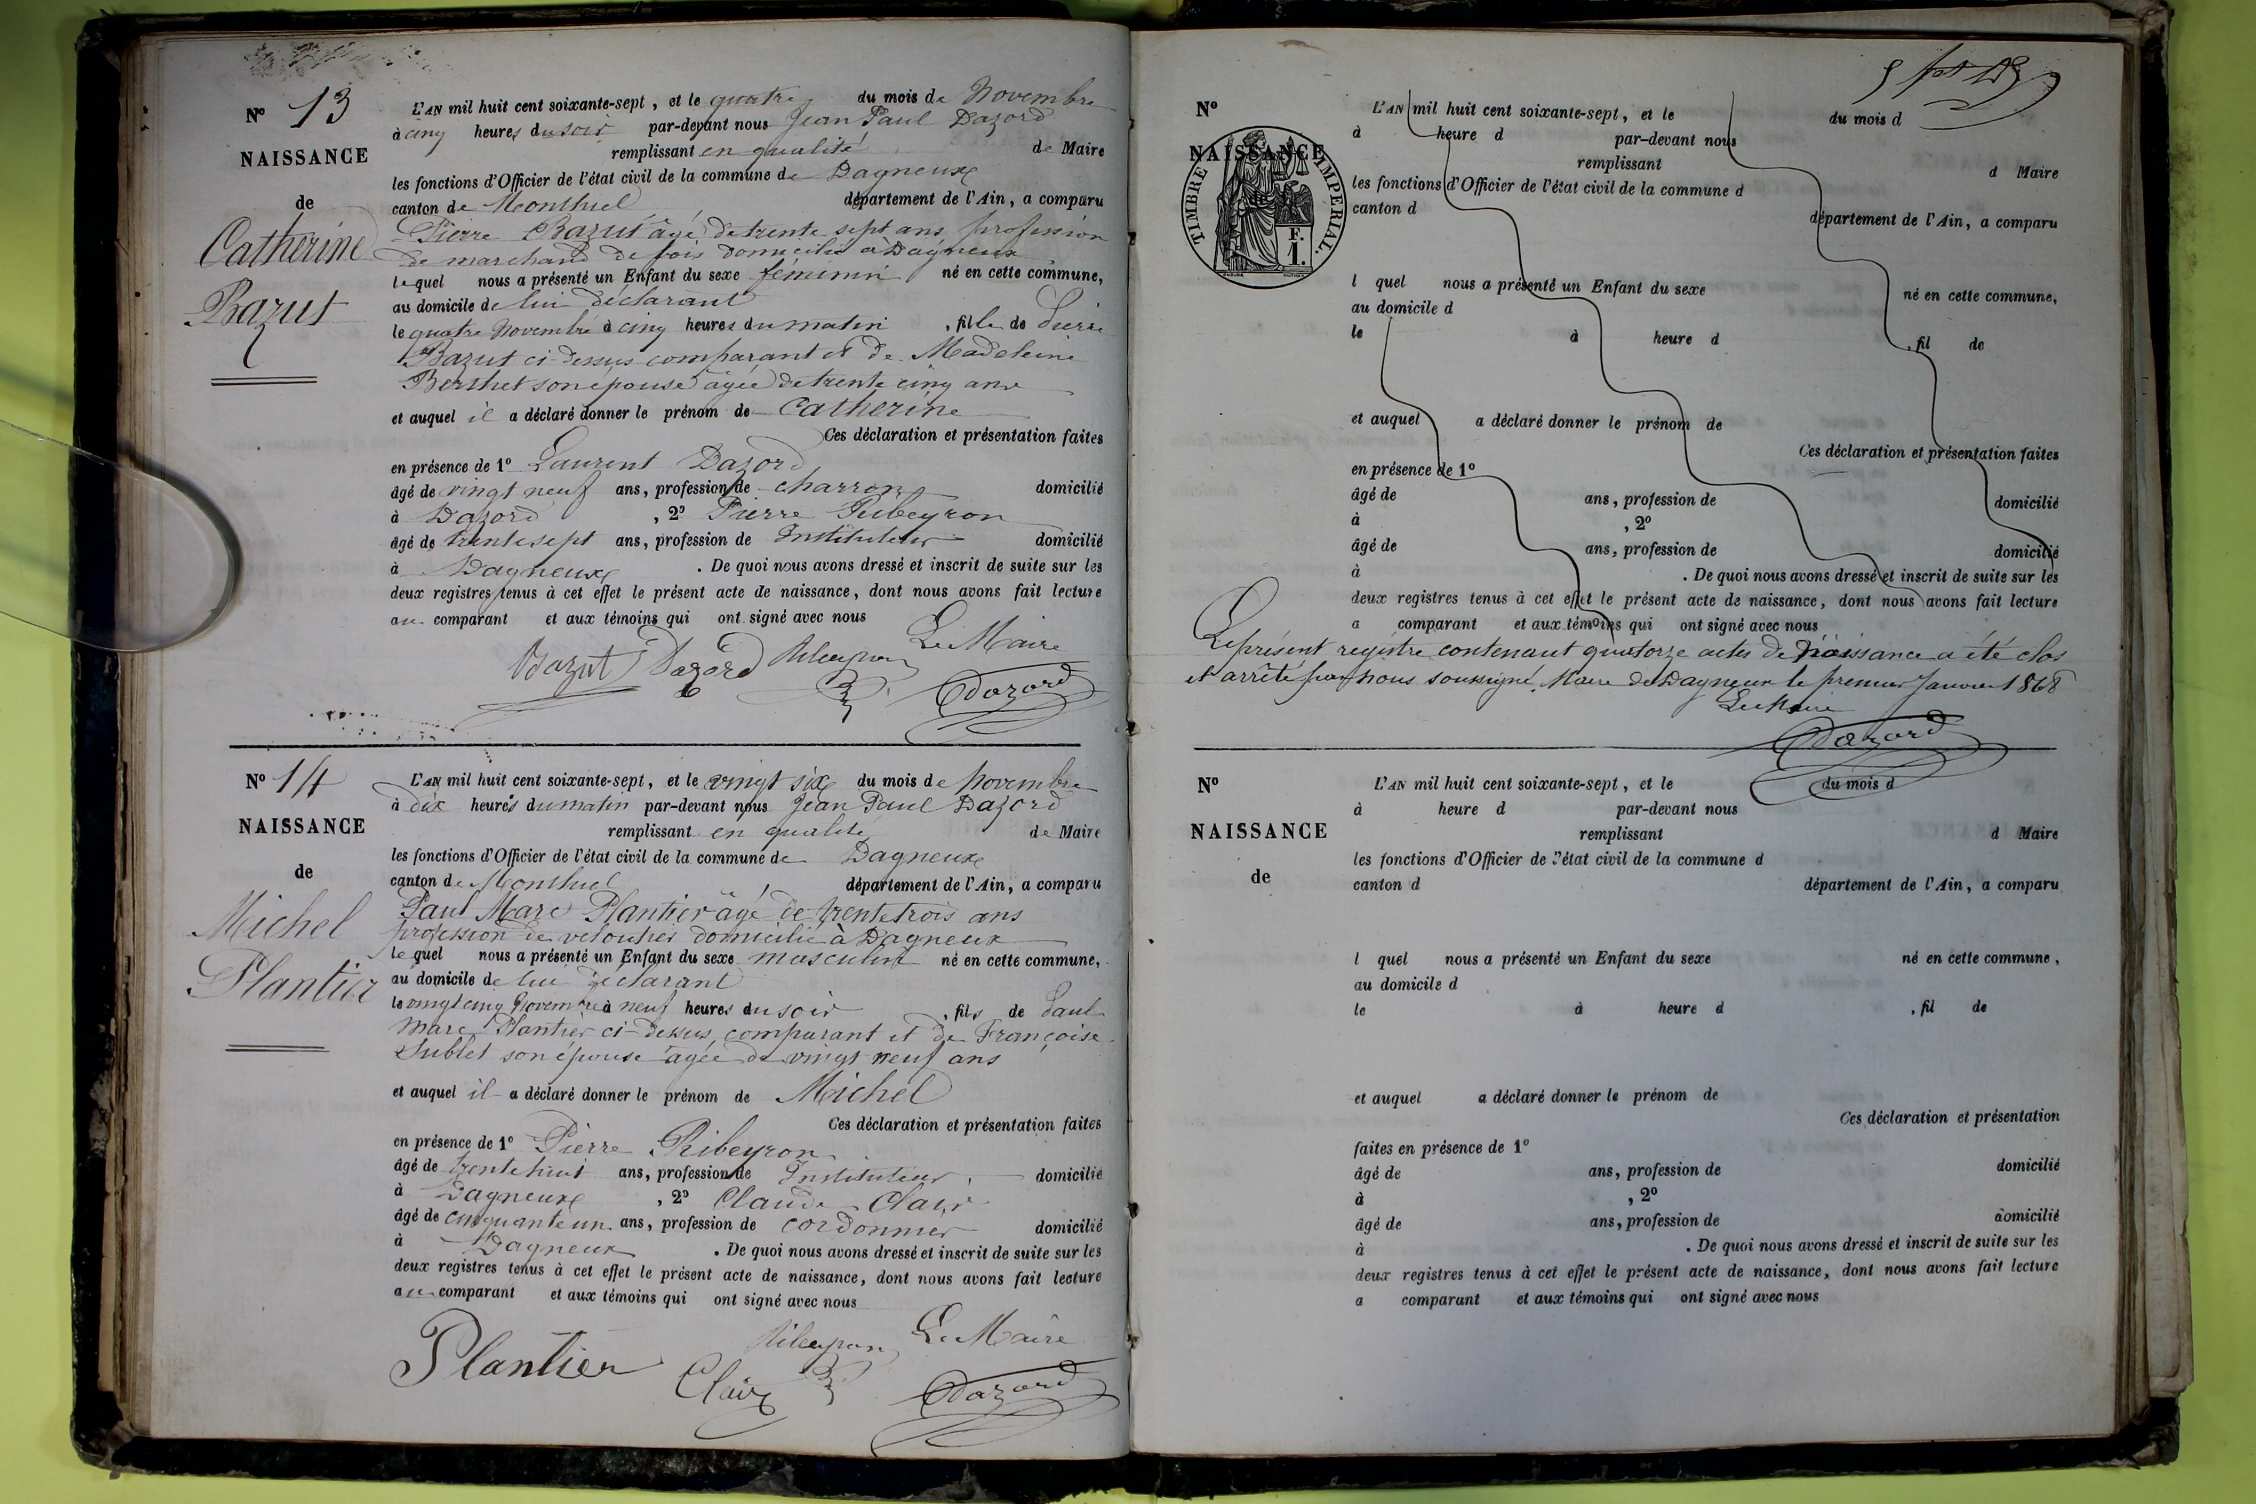 N° 13
NAISSANCE
de
Catherine
Bazut
L'AN mil huit cent soixante-sept, et le quatre du mois de Novembre
à cinq heures du soir par-devant nous Jean Paul Dazord
remplissant en qualité de Maire
les fonctions d'Officier de l'état civil de la commune de Dagneux
canton de Montluel département de l'Ain, a comparu
Pierre Bazut âgé de trente sept ans profession
de marchand de bois domicilié à Dagneux
lequel nous a présenté un Enfant du sexe féminin né en cette commune,
au domicile de lui déclarant
le quatre Novembre à cinq heures du matin, fille de Pierre
Bazut ci-dessus comparant et de Madeleine
Berthet son épouse âgée de trente cinq ans
et auquel il a déclaré donner le prénom de Catherine
Ces déclaration et présentation faites
en présence de 1° Laurent Dazord
âgé de vingt neuf ans, profession de charron domicilié
à Dazord, 2° Pierre Ribeyron
âgé de trente sept ans, profession de Instituteur domicilié
à Dagneux. De quoi nous avons dressé et inscrit de suite sur les
deux registres tenus à cet effet le présent acte de naissance, dont nous avons fait lecture
au comparant et aux témoins qui ont signé avec nous
Le Maire
Bazut Dazord Ribeyron Dazord
N° 14
NAISSANCE
de
Michel
Plantier
L'AN mil huit cent soixante-sept, et le vingt six du mois de Novembre
à dix heures du matin par-devant nous Jean Paul Dazord
remplissant en qualité de Maire
les fonctions d'Officier de l'état civil de la commune de Dagneux
canton de Montluel département de l'Ain, a comparu
Paul Marc Plantier âgé de trente trois ans
profession de veloutier domicilié à Dagneux
lequel nous a présenté un Enfant du sexe masculin né en cette commune,
au domicile de lui déclarant
le vingt cinq Novembre à neuf heures du soir, fils de Paul
Marc Plantier ci-dessus comparant et de Françoise
Sublet son épouse âgée de vingt neuf ans
et auquel il a déclaré donner le prénom de Michel
Ces déclaration et présentation faites
en présence de 1° Pierre Ribeyron
âgé de trente huit ans, profession de Instituteur domicilié
à Dagneux, 2° Claude Clair
âgé de cinquante un ans, profession de cordonnier domicilié
à Dagneux. De quoi nous avons dressé et inscrit de suite sur les
deux registres tenus à cet effet le présent acte de naissance, dont nous avons fait lecture
au comparant et aux témoins qui ont signé avec nous
Ribeyron Le Maire
Plantier Clair Dazord
N°
NAISSANCE
TIMBRE IMPERIAL.
F.
1.
L'AN mil huit cent soixante-sept, et le du mois d
à heure d par-devant nous
remplissant d Maire
les fonctions d'Officier de l'état civil de la commune d
canton d département de l'Ain, a comparu
l quel nous a présenté un Enfant du sexe né en cette commune,
au domicile d
le à heure d, fil de
et auquel a déclaré donner le prénom de
Ces déclaration et présentation faites
en présence de 1°
âgé de ans, profession de domicilié
à, 2°
âgé de ans, profession de domicilié
à. De quoi nous avons dressé et inscrit de suite sur les
deux registres tenus à cet effet le présent acte de naissance, dont nous avons fait lecture
a comparant et aux témoins qui ont signé avec nous
Le présent registre contenant quatorze actes de Naissance a été clos
et arrêté par nous soussigné, Maire de Dagneux le premier Janvier 1868
Le Maire
Dazord
N°
NAISSANCE
de
L'AN mil huit cent soixante-sept, et le du mois d
à heure d par-devant nous
remplissant d Maire
les fonctions d'Officier de l'état civil de la commune d
canton d département de l'Ain, a comparu
l quel nous a présenté un Enfant du sexe né en cette commune,
au domicile d
le à heure d, fil de
et auquel a déclaré donner le prénom de
Ces déclaration et présentation
faites en présence de 1°
âgé de ans, profession de domicilié
à, 2°
âgé de ans, profession de domicilié
à. De quoi nous avons dressé et inscrit de suite sur les
deux registres tenus à cet effet le présent acte de naissance, dont nous avons fait lecture
a comparant et aux témoins qui ont signé avec nous